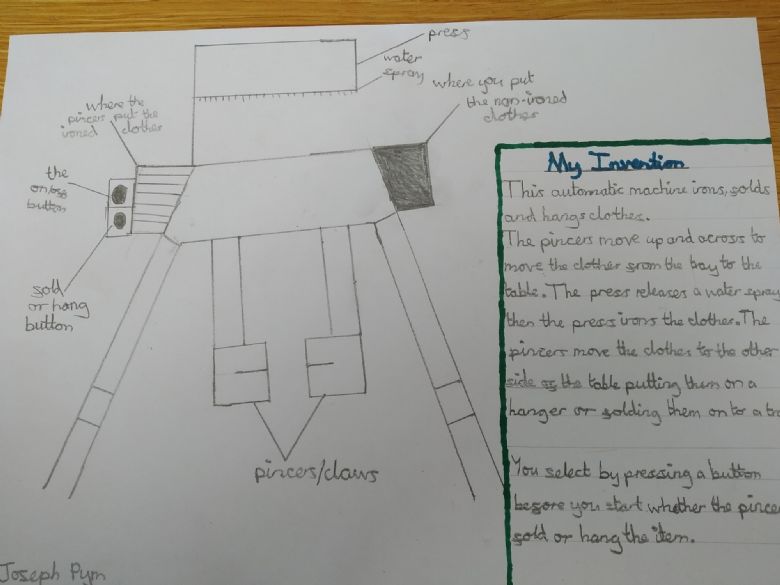 press
water
spray
where you put
the non-ironed
clothes
where the
pincers put the
ironed clothes
the
on/off
button
fold
or hang
button
pincers/claws
Joseph Pym
My Invention
This automatic machine irons, folds
and hangs clothes.
The pincers move up and across to
move the clothes from the tray to the
table. The press releases a water spray
then the press irons the clothes. The
pincers move the clothes to the other
side of the table putting them on a
hanger or folding them on to a tra
You select by pressing a button
before you start whether the pincer
fold or hang the item.